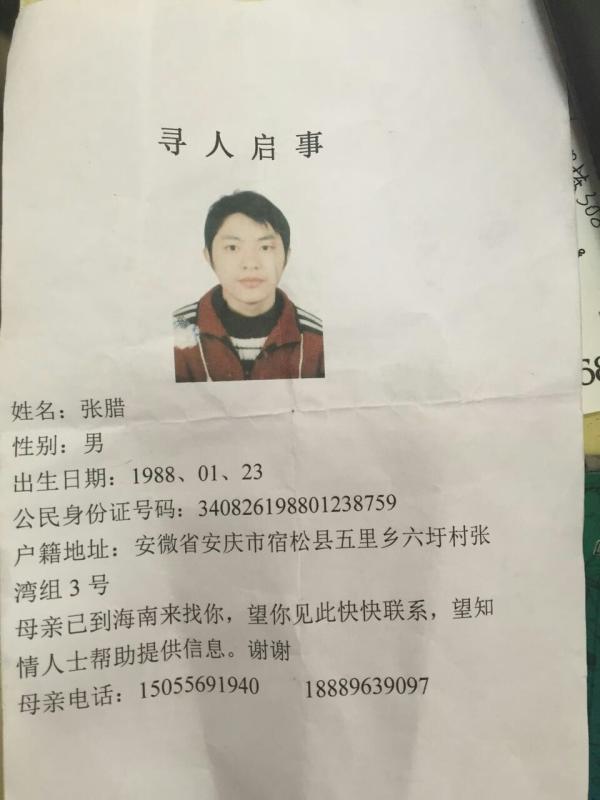 寻人启事
姓名：张腊
性别：男
出生日期：1988、01、23
公民身份证号码：340826198801238759
户籍地址：安微省安庆市宿松县五里乡六圩村张
湾组3号
母亲已到海南来找你，望你见此快快联系，望知
情人士帮助提供信息。谢谢
母亲电话：15055691940 18889639097
508
68